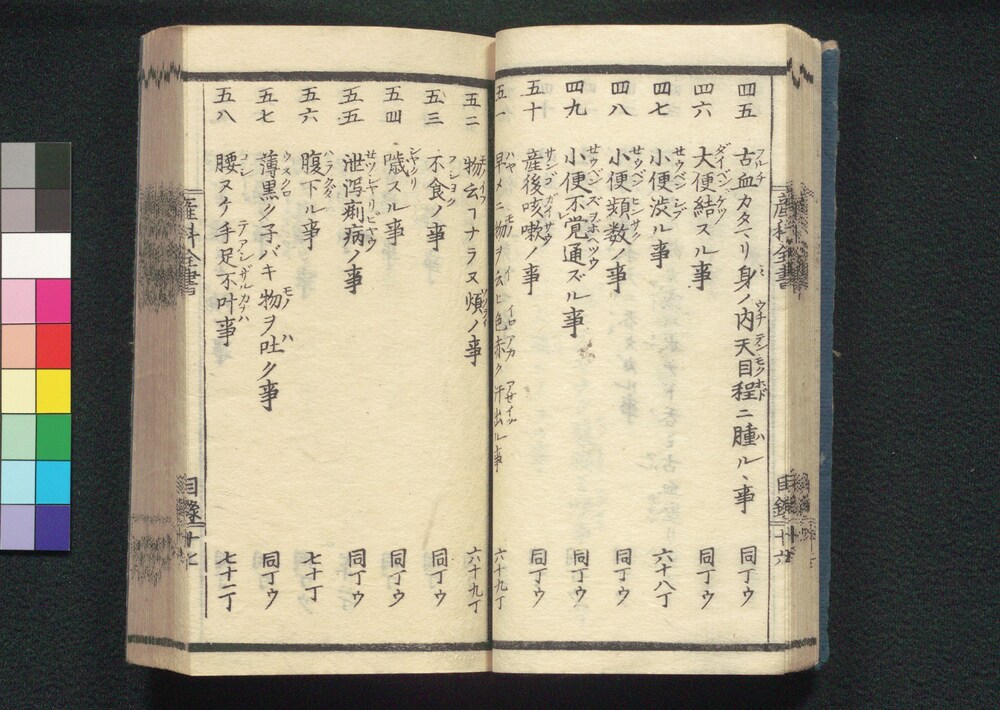 四五 古血カタマリ身ノ内天目程ニ腫ルヽ事 同丁ウ
四六 大便結スル事 同丁ウ
四七 小便渋ル事 六十八丁
四八 小便頻数ノ事 同丁ウ
四九 小便不覚通ズル事 同丁ウ
五十 産後咳嗽ノ事 同丁ウ
五一 早メニ物ヲ云ヒ色赤ク汗出ル事 六十九丁
五二 物云ヿナラヌ煩ノ事 六十九丁
五三 不食ノ事 同丁ウ
五四 噦スル事 同丁ウ
五五 泄瀉痢病ノ事 同丁ウ
五六 腹下ル事 七十丁
五七 薄黒ク子バキ物ヲ吐ク事 同丁ウ
五八 腰ヌケ手足不叶事 七十一丁
産科全書 目録 廿六
産科全書 目録 廿七